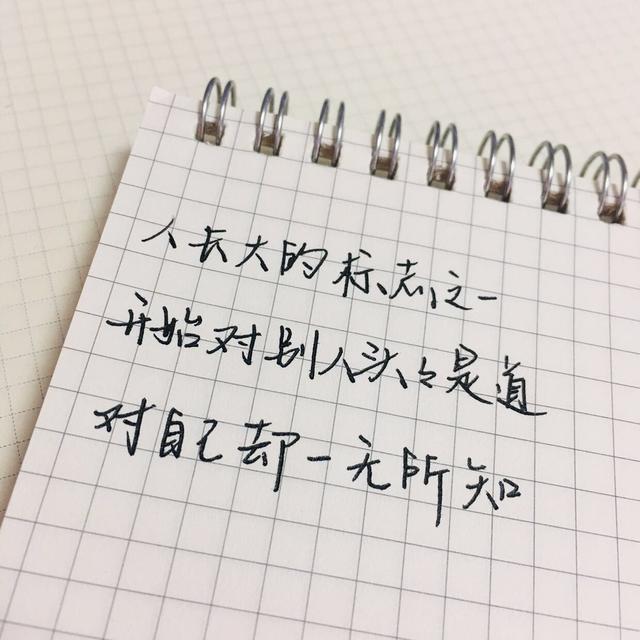 人长大的标志之一
开始对别人头头是道
对自己却一无所知